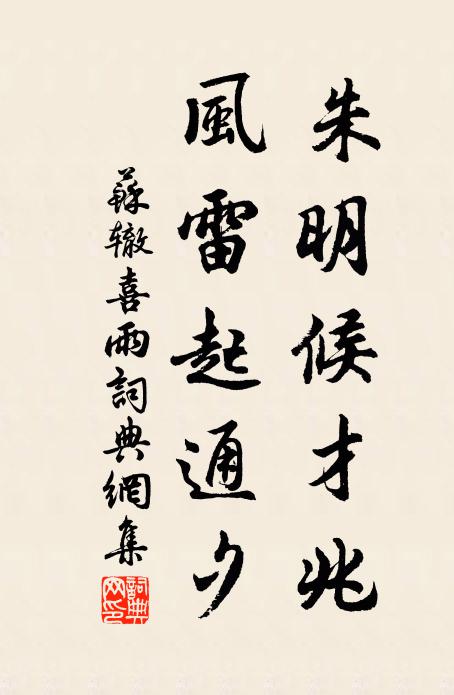 朱明候才兆
風雷起通夕
蘇辙喜雨詞典網集
詞典网印